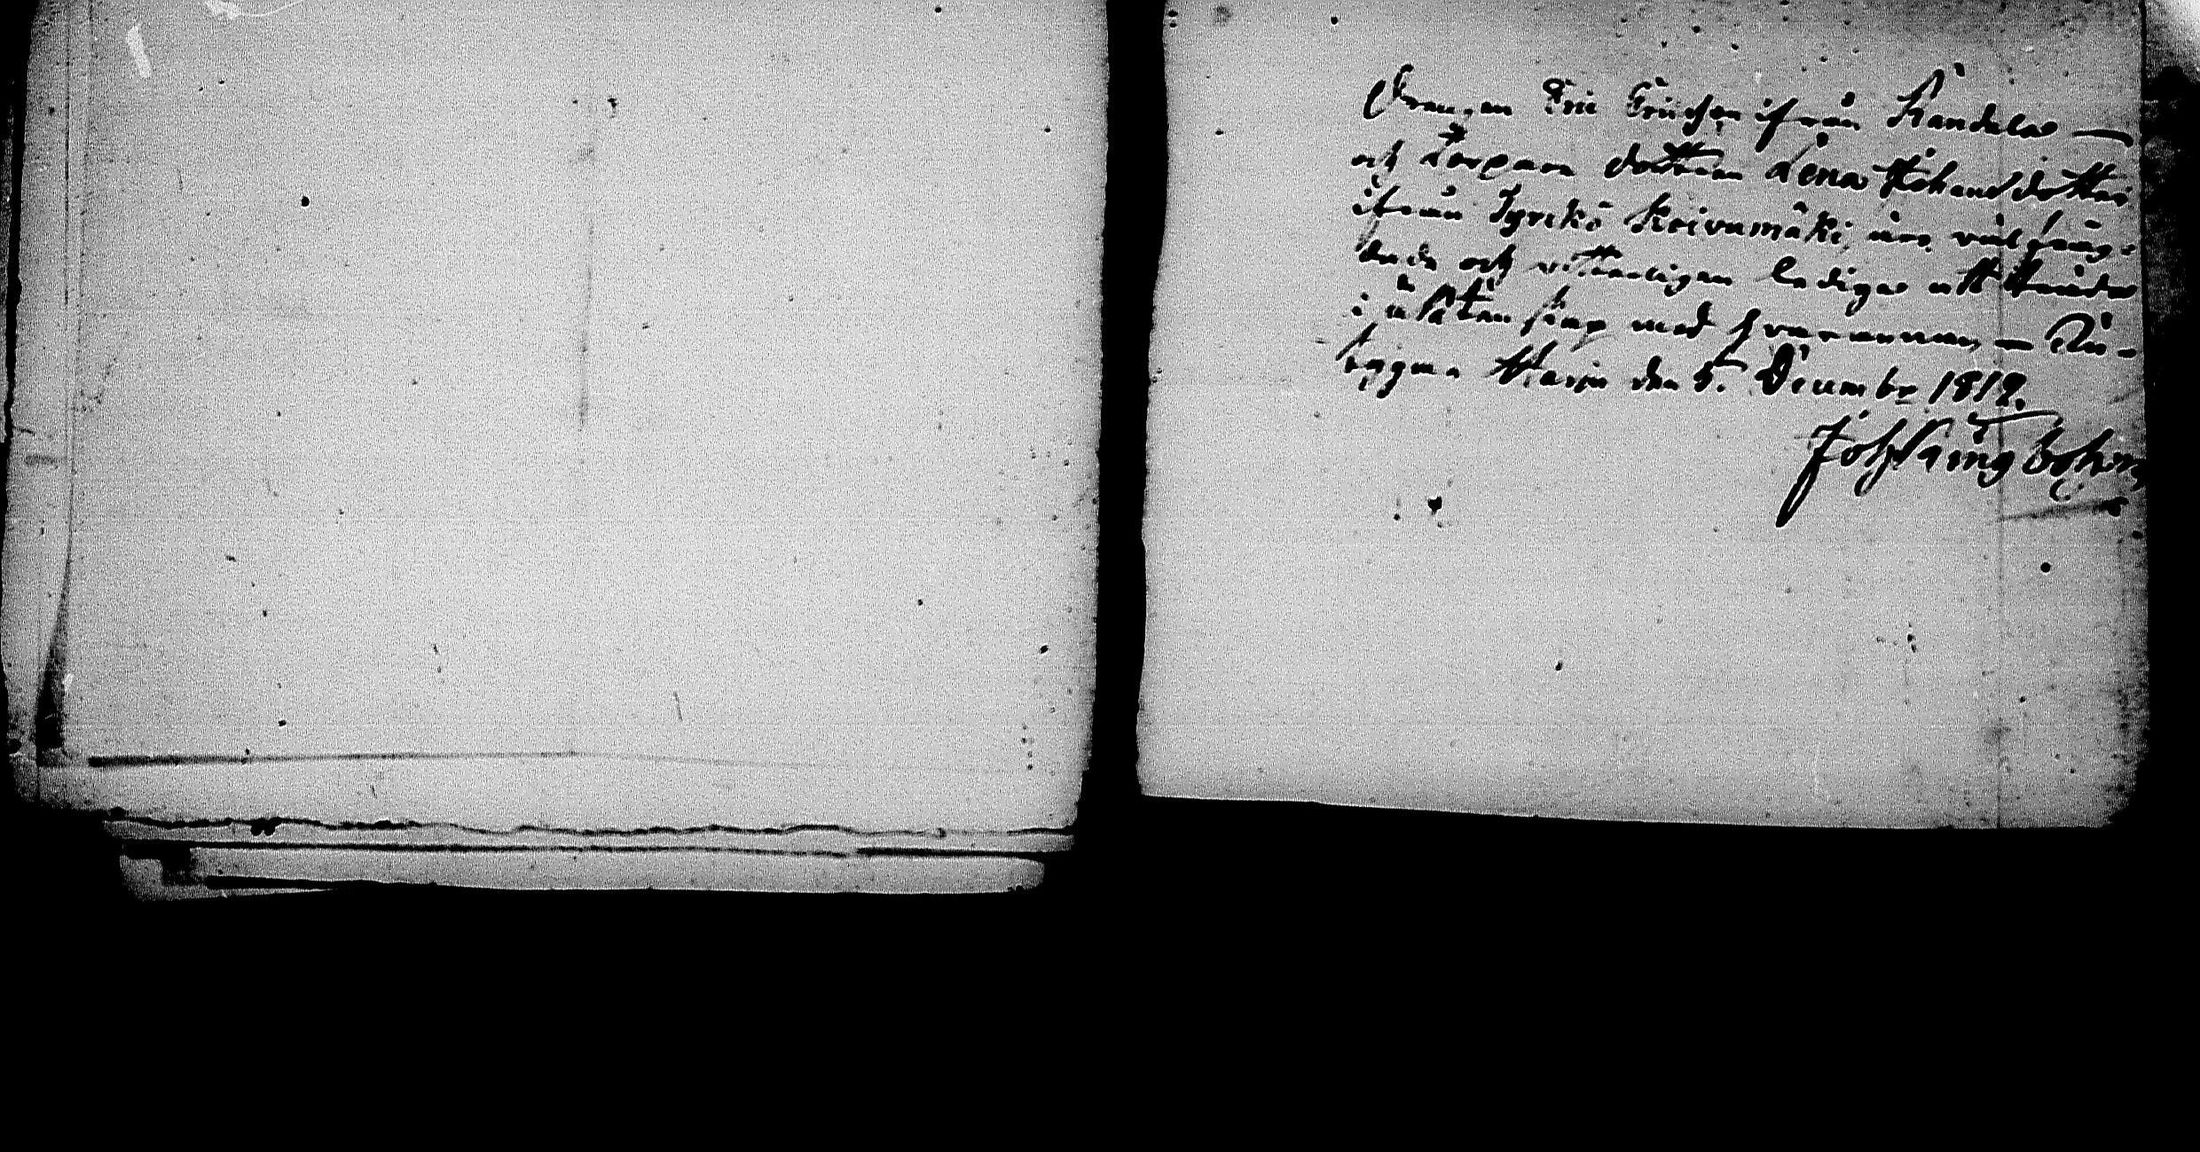 Drengen Eric Ericsson ifrån Kandela —
och Torpare dottren Lena Johansdotter
ifrån Jyrkö Koivumäki, äro välfräg-
dade och vitterligen lediga att träda
i äktenskap med hvarannan —
den 5. December 1812.
Joh